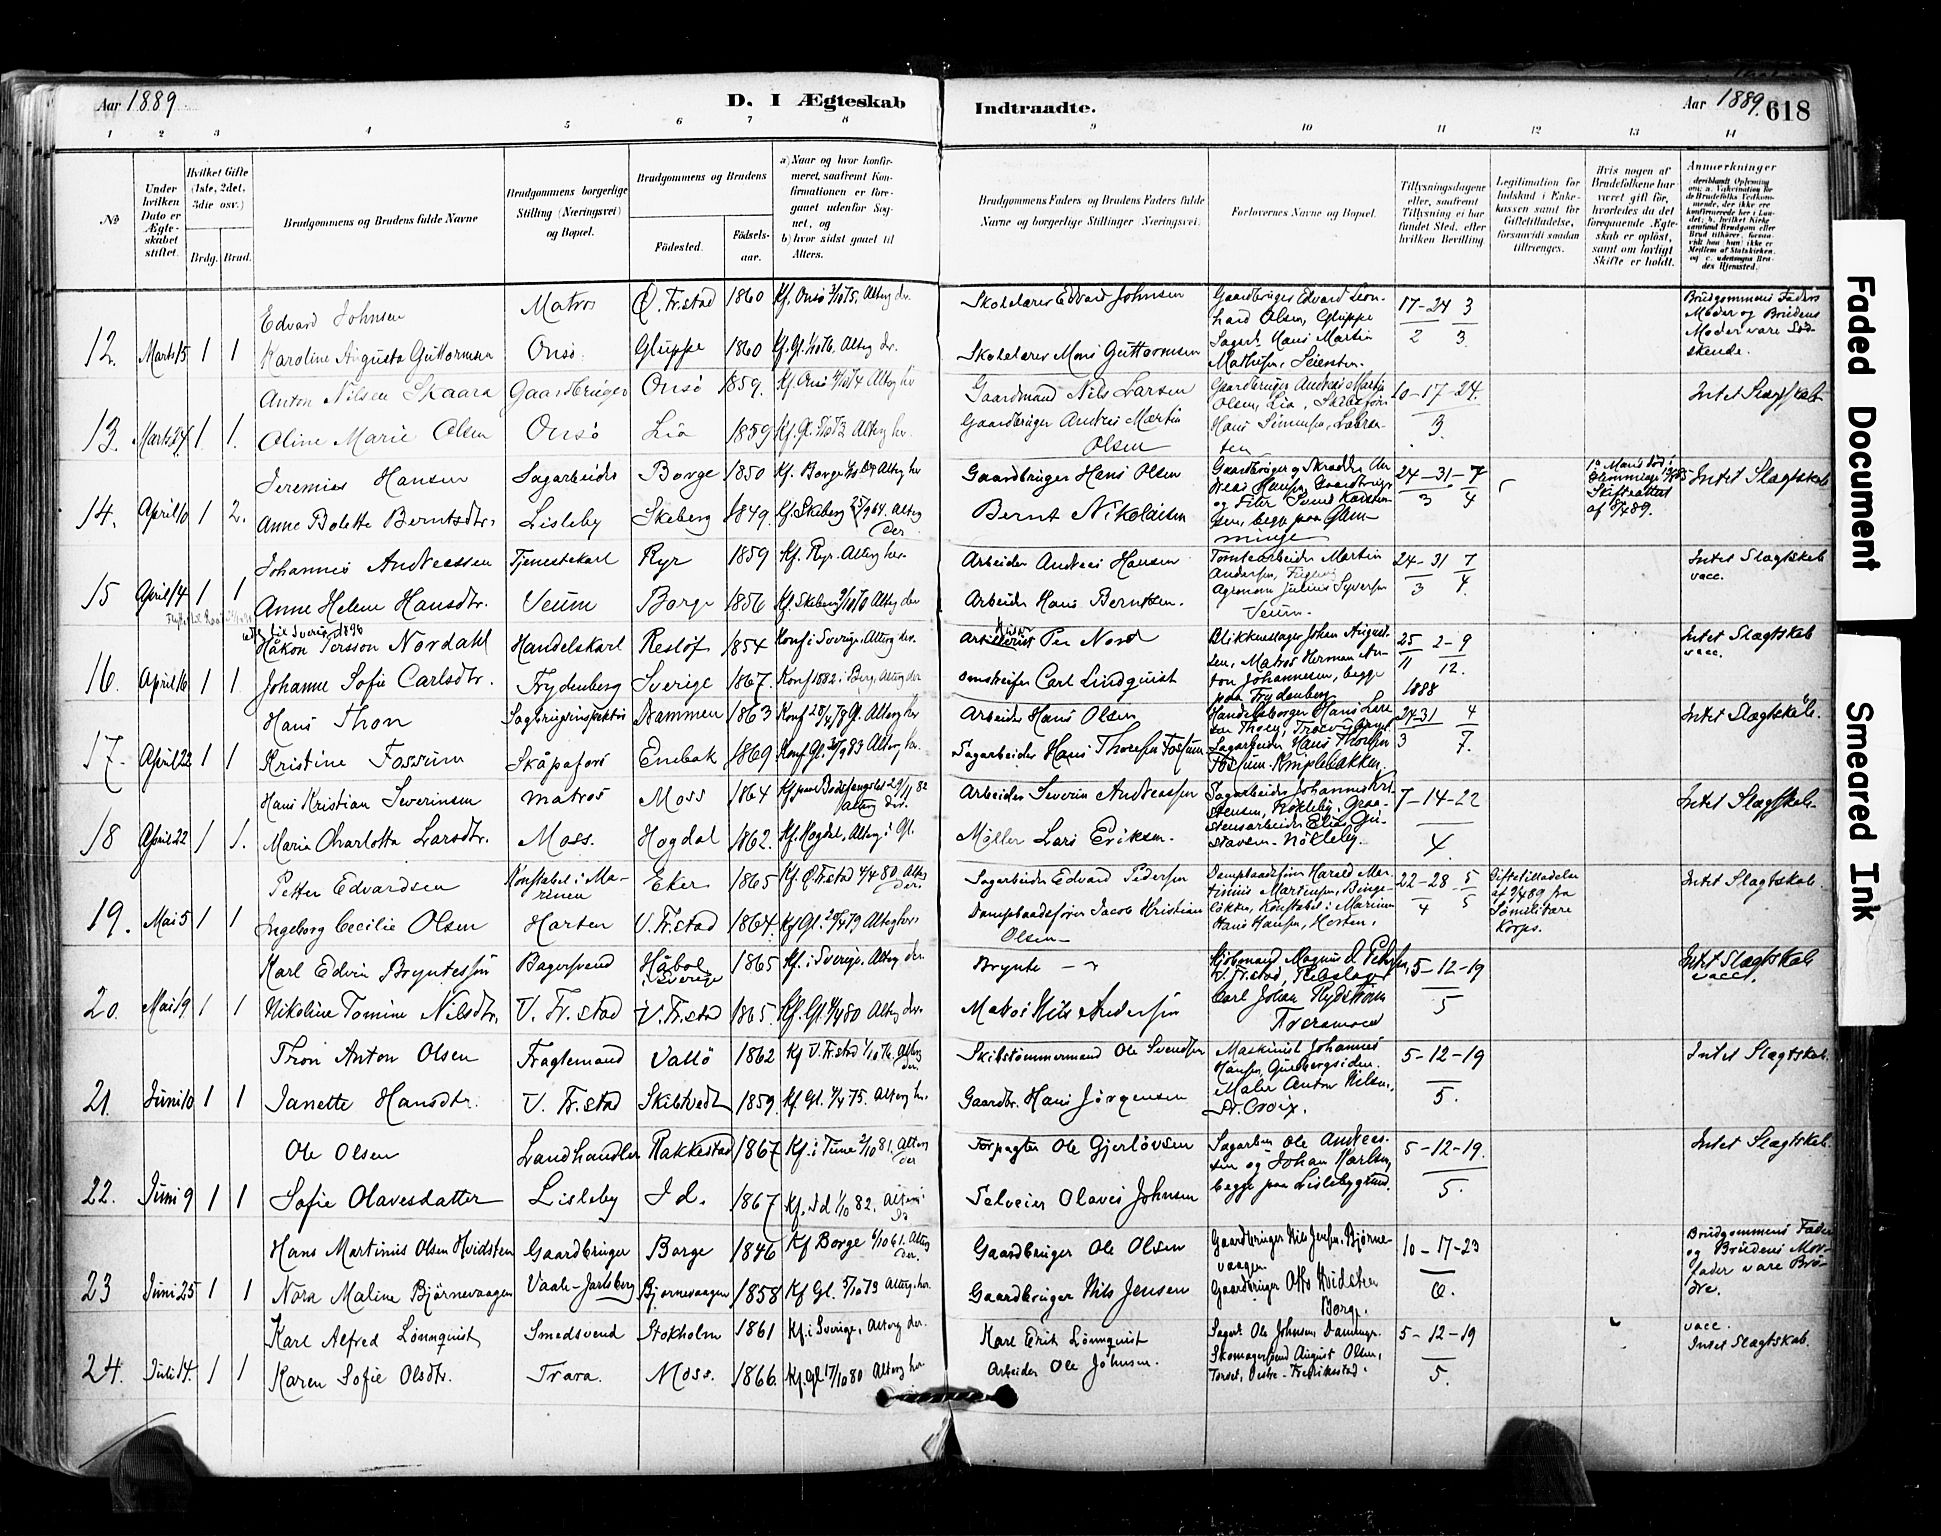 Aar 1889.
D. I Ægteskab Indtraadte.
Aar 1889. 618
1 2 3 4 5 6 7 8 9 10 11 12 13 14
No
Under hvilken Dato er Ægteskabet stiftet.
Hvilket Gifte (1ste, 2det, 3die osv.)
Brdg. Brud.
Brudgommens og Brudens fulde Navne
Brudgommens borgerlige Stilling (Næringsvei) og Bopæl.
Brudgommens og Brudens
Fødested. Fødselsaar.
a) Naar og hvor konfirmeret, saafremt Konfirmationen er foregaaet udenfor Sognet, og
b) hvor sidst gaaet til Alters.
Brudgommens Faders og Brudens Faders fulde Navne og borgerlige Stillinger (Næringsvei).
Forlovernes Navne og Bopæl.
Tillysningsdagene eller, saafremt Tillysning ei har fundet Sted, efter hvilken Bevilling.
Legitimation for Indskud i Enkekassen samt for Giftetilladelse, forsaavidt saadan tiltrænges.
Hvis nogen af Brudefolkene har været gift før, hvorledes da det foregaaende Ægteskab er opløst, samt om lovligt Skifte er holdt.
Anmærkninger
Edvard Johnsen Matros Ø. Fr.stad 1860 Kf. Onsö 3/10 75. Alterg. der. Skolelærer Edvard Johnsen Gaardbruger Edvard Leonhard Olsen, Gluppe 17-24 3 Brudgommens Faders Moder og Brudens Moder vare Södskende.
12. Marts 15 1 1 Karoline Augusta Guttormsen Onsö. Gluppe 1860 Kf. Gl. 1/10 76. Alterg. der. Skolelærer Mons Guttormsen Sagarb. Hans Martin Mathisen, Seiersten 2 3.
Anton Nilsen Skaara Gaardbruger Onsö 1859. Kf. Onsö 4/10 74 Alterg. her Gaardmand Nils Larsen Gaardbruger Andreas Martin Olsen, Lia 10-17-24. Intet Slægtskab
13. Marts 24 1 1. Oline Marie Olsen Onsö Lia 1859 Alterg. her. Gaardbruger Andreas Martin Olsen Hans Simensen 3.
Jeremias Hansen Sagarbeider Borge 1850 Kf. Borge Alterg. her Gaardbruger Hans Olsen 24-31-7 Intet Slægtskab
14. April 10 1 2. Anne Bolette Berntsdtr. Lisleby Skeberg 1849. Kf. Skeberg 64. Alterg. der Bernt Nikolaisen begge paa Glemminge 3 4 Skifteattest af 5/4 89.
Johannes Andreassen Tjenestekarl Ryr 1859 Kf. Ryr. Alterg. her. Arbeider Andreas Hansen Tomtearbeider Martin Andersen, 24-31 7 Intet Slægtskab vacc.
15 April 14 1 1 Anne Helene Hansdtr. Veum Borge 1856 Kf. Skeberg 2/10 70 Alterg. der Arbeider Hans Berntsen. Agrmann Julius Syversen Veum. 3 4.
Håkon Persson Nordahl Handelskarl Reslöf 1854 Konf. i Sverige. Alterg. her. Per Nord Blikkenslager Johan Augustsen, Matros Herman Anton Johannesen, begge paa Frydenberg 25 2-9 Intet Slægtskab vacc.
16. April 16 1 1. Johanne Sofie Carlsdtr. Frydenberg Sverige 1867. Konf 1882 i Berg, Alterg. der omstreifer Carl Lindquist 11 12. 1888
Hans Thon Sagbrugsinspektör Drammen 1863 Konf 28/4 78 Gl. Alterg. her Arbeider Hans Olsen Handelsborger Hans Larsen Thoen, 24-31 4 Intet Slægtskab.
17. April 22 1 1 Kristine Fossum Skåpafors Enebak 1869 Konf Gl. 83 Alterg. her. Sagarbeider Hans Thoresen Fossum Sagarbeider Hans Thoresen Fossum Kniplebakken. 3 7.
Hans Kristian Severinsen matros Moss 1864 Kf. paa Bodsfængslet 29/11 82 Alterg. der. Arbeider Severin Andreassen Sagarbeider Johannes Kristensen, Nökleby, 7-14-22 Intet Slægtskab
18 April 22 1 1. Maria Charlotta Larsdtr. Moss. Hogdal 1862. Kf. Hogdal, Alterg. i Gl. Möller Lars Eriksen. Stensarbeider Elias Gustavsen. Nökleby. 4.
Petter Edvardsen Konstabel i Marinen Eker 1865 Kf. Ø. Fr.stad 4/4 80 Alterg. der. Sagarbeider Edvard Pedersen Dampbaadsfører Harald Martinius Martinsen, 22-28 5 Giftetilladelse af 2/4 89 fra Sømilitære Korps. Intet Slægtskab.
19. Mai 5 1 1 Ingeborg Cecilie Olsen Horten V. Fr.stad 1864. Kf. Gl. 79 Alterg. her. Dampbaadsfører Jacob Kristian Olsen Konstabel i Marinen Hans Hansen, Horten. 4 5
Karl Edvin Bryntessön Bagersvend Håbol Sverige 1865 Kf. i Sverige. Alterg. der. Brynte — Kjöbmand Magnus D. Petersen, V. Fr.stad, 5-12-19 Intet Slægtskab vacc.
20. Mai 19 1 1 Nikoline Tomine Nilsdtr. V. Fr. stad V. Fr. stad 1865. Kf. Gl. 4/4 80 Alterg. der. Matros Nils Andersen Carl Johan Rydström 5
Thori Anton Olsen Fragtemand Vallö 1862 Kf V. Fr.stad 1/10 76. Alterg. der. Skibstömmermand Ole Svendsen Maskinist Johannes Hansen, Gudbergsiden. 5-12-19 Intet Slægtskab.
21. Juni 10 1 1 Janette Hansdtr. V. Fr. stad Skibtvedt 1859 Kf. Gl. 11/4 75. Alterg. her. Gaardbr. Hans Jörgensen Maler Anton Nilsen, St. Croix. 5.
Ole Olsen Landhandler Rakkestad 1867 Kf. i Tune 2/10 81. Alterg. der Forpagter Ole Gjerlövsen Sagarb. Ole Andreassen og Johan Karlsen, begge paa Lislebygrund. 5-12-19. Intet Slægtskab.
22. Juni 9 1 1 Sofie Olavesdatter Lisleby Id. 1867 Kf. Id 1/10 82. Alterg. i Id Selveier Olaves Johnsen 5.
Hans Martinus Olsen Hvidsten Gaardbruger Borge 1846 Kf Borge 6/10 61. Alterg. der. Gaardbruger Ole Olsen Gaardbruger Nils Jensen, Björnevaagen 10-17-23 Brudgommens Fader og Brudens Morfader vare Brödre.
23 Juni 25 1 1 Nora Maline Björnevaagen Vaale Jarlsberg Bjornevaagen 1858 Kf Gl. 5/10 73 Alterg. her. Gaardbruger Nils Jensen Gaardbruger Otto Hvidsten Borge. 6.
Karl Alfred Lönnquist Smedsvend Stokholm 1861 Kf. i Sverige, Alterg. der. Karl Erik Lönnquist Sagarb. Ole Johnsen, 5-12-19 vacc. Intet Slægtskab.
24. Juli 14. 1 1 Karen Sofie Olsdtr. Trara. Moss. 1866. Kf. Gl 17/10 80 Alterg. her Arbeider Ole Johnsen. Skomagersvend August Olsen, Torvet, Östre-Fredrikstad. 5.
Faded Document
Smeared Ink